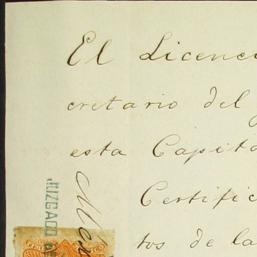 El Licenci
cretario del
esta Capita
Certific
tos de la
JUZGADO